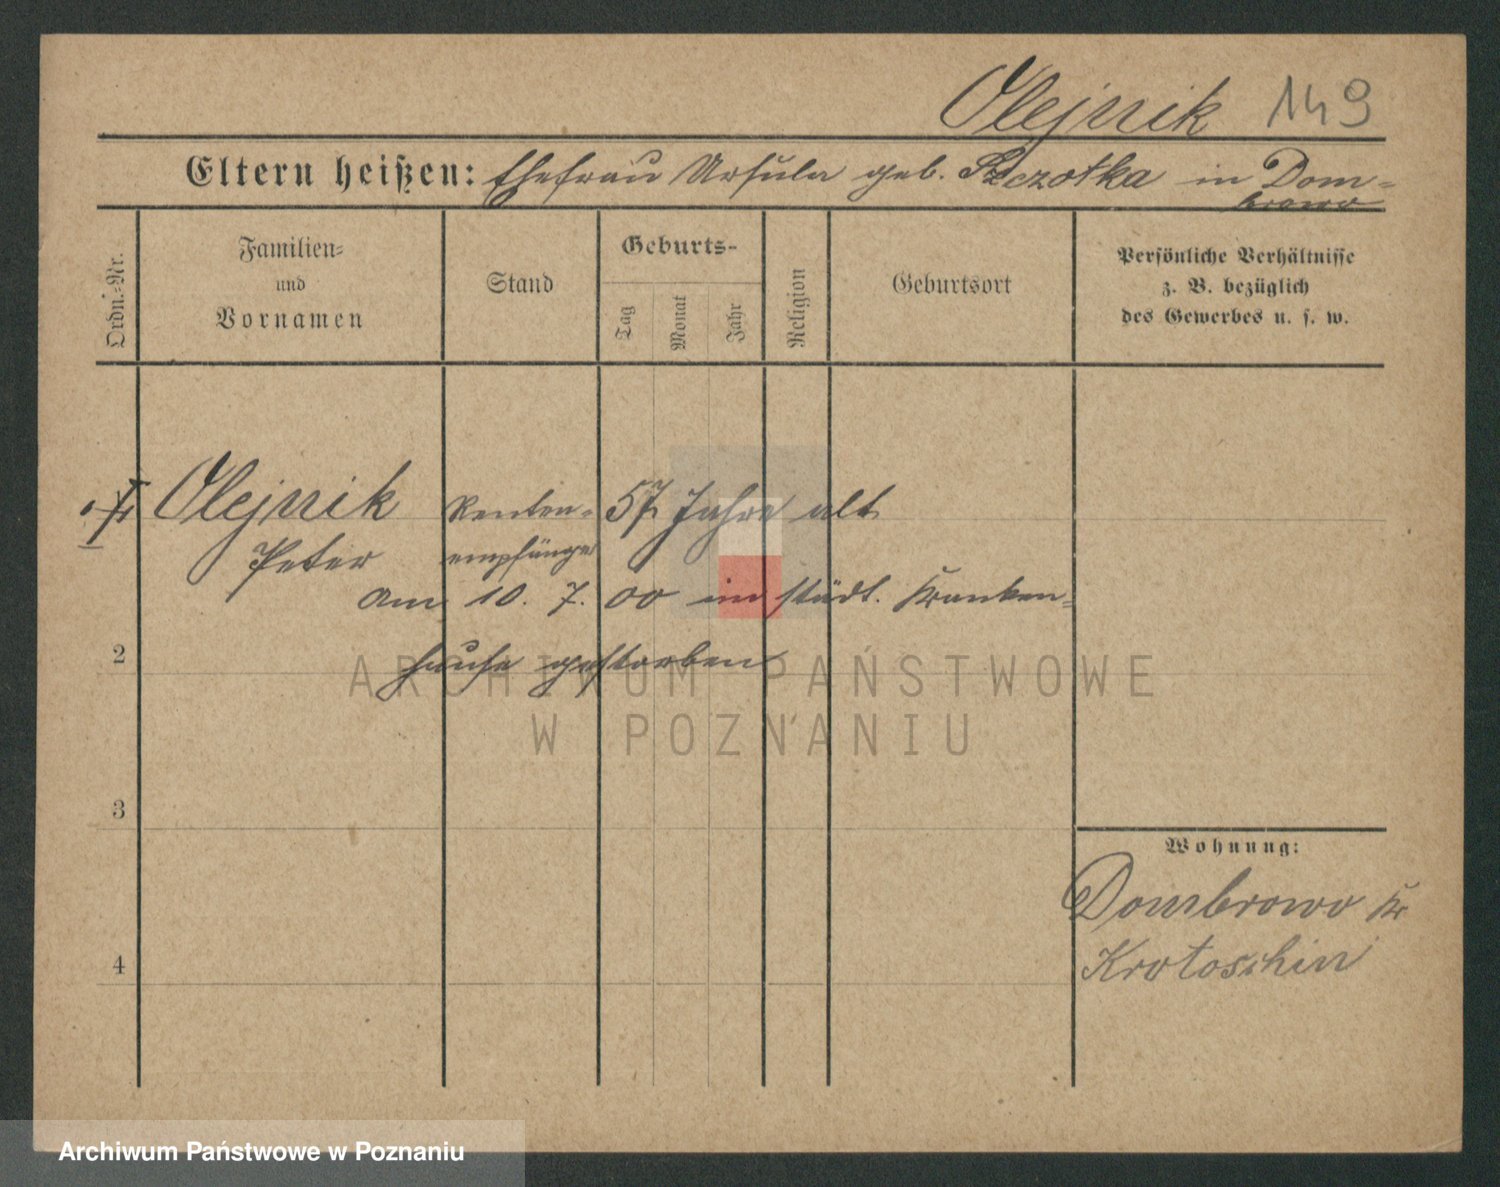 Olejnik 149
Eltern heißen: Ehefrau Ursula geb. Szczotka in Dom=
browo
Ordn.=Nr.
Familien=
und
Vornamen
Stand
Geburts-
Tag
Monat
Jahr
Religion
Geburtsort
Persönliche Verhältnisse
z. B. bezüglich
des Gewerbes u. s. w.
Olejnik Renten= 57 Jahre alt
Peter empfänger
Am 10. 7. 00 im städt. Kranken=
2
hause gestorben
ARCHIWUM PAŃSTWOWE
W POZNANIU
3
Wohnung:
Dombrowo Kr
Krotoschin
4
Archiwum Państwowe w Poznaniu